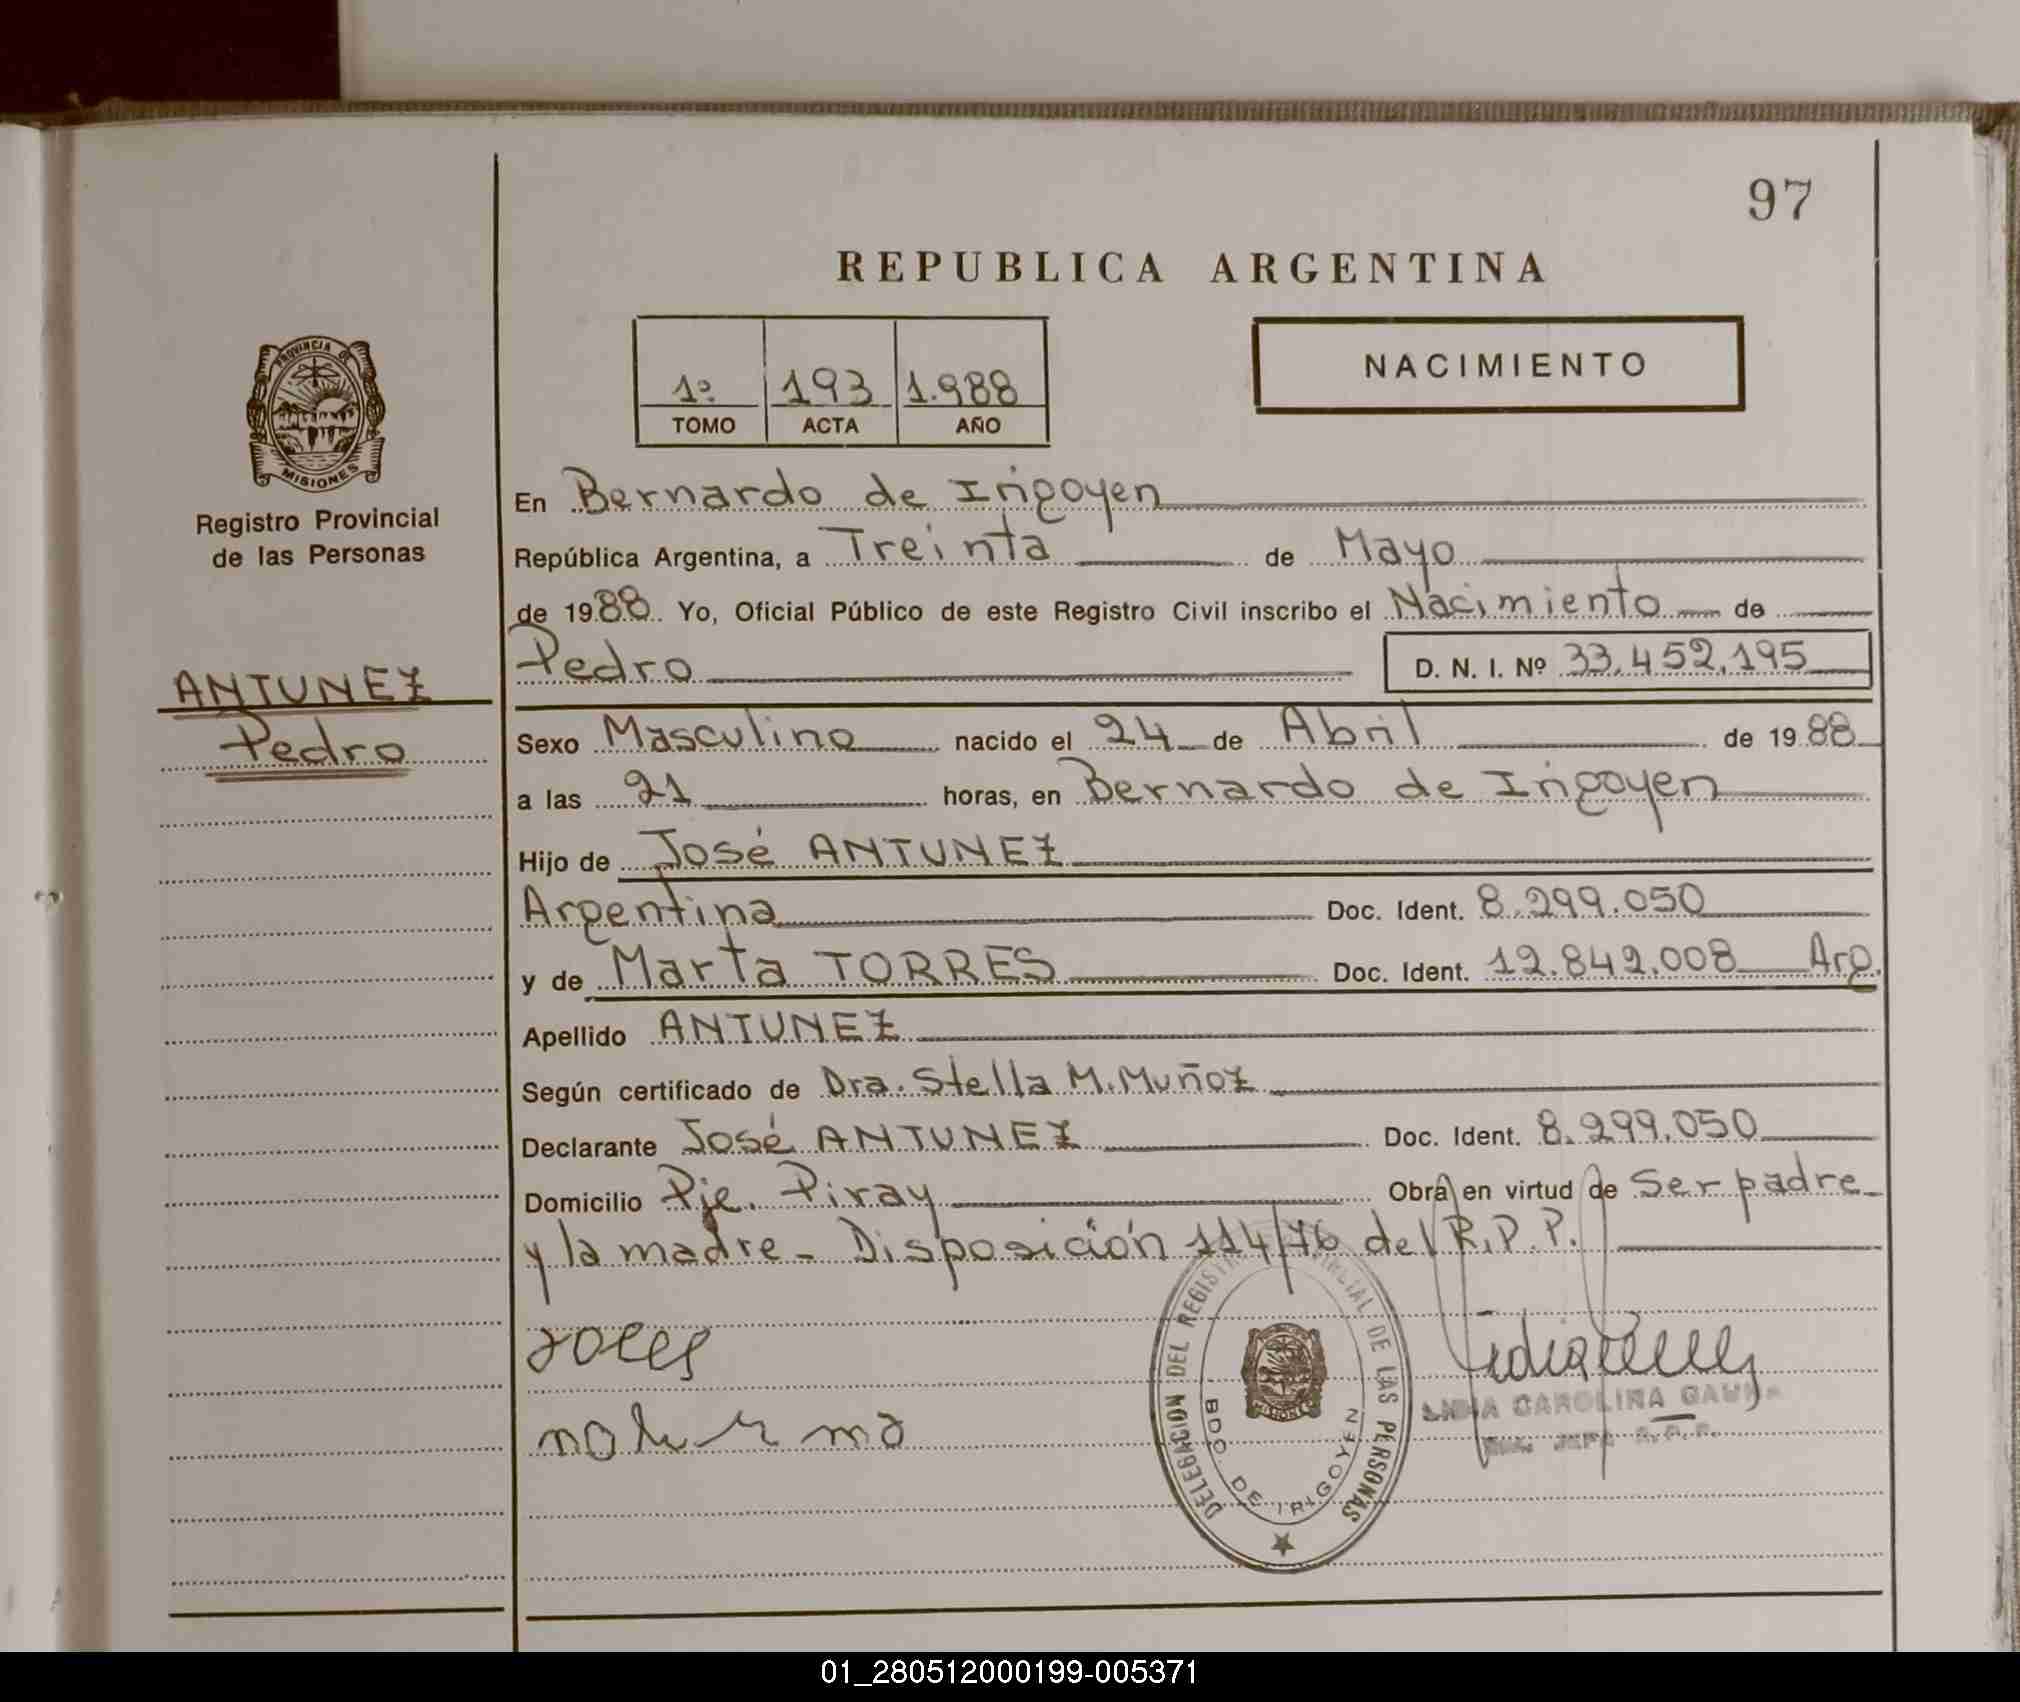 97
REPUBLICA ARGENTINA
PROVINCIA DE
MISIONES
Registro Provincial
de las Personas
1º 193 1.988
TOMO ACTA AÑO
NACIMIENTO
En Bernardo de Irigoyen
República Argentina, a Treinta de Mayo
de 1988 Yo, Oficial Público de este Registro Civil inscribo el Nacimiento de
Pedro D. N. I. Nº 33.452.195
ANTUNEZ
Pedro
Sexo Masculino nacido el 24 de Abril de 1988
a las 21 horas, en Bernardo de Irigoyen
Hijo de José ANTUNEZ
Argentina Doc. Ident. 8.299.050
y de Marta TORRES Doc. Ident. 12.842.008 Arg.
Apellido ANTUNEZ
Según certificado de Dra. Stella M. Muñoz
Declarante José ANTUNEZ Doc. Ident. 8.299.050
Domicilio Pje. Piray Obra en virtud de Ser padre
y la madre - Disposición 114/76 del R.P.P.
DELEGACION DEL REGISTRO PROVINCIAL DE LAS PERSONAS
BDO. DE IRIGOYEN
CAROLINA
01_280512000199-005371